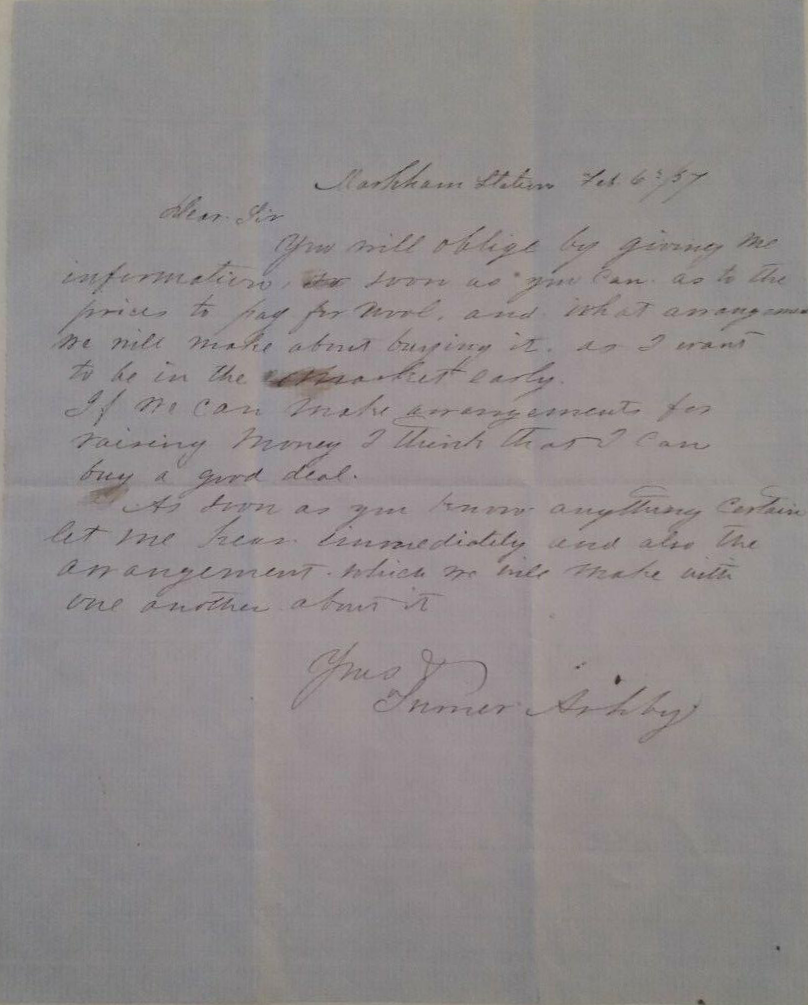 Markham Station Feb. 6th/57
Dear Sir
You will oblige by giving me
information, so soon as you can. as to the
prices to pay for wool. and what arrangemen
we will make about buying it. as I want
to be in the market early.
If we can make arrangements for
raising money I think that I can
buy a good deal.
As soon as you know anything certain
let me hear immediately and also the
arrangement which we will make with
one another about it
Yrs &
Turner Ashby